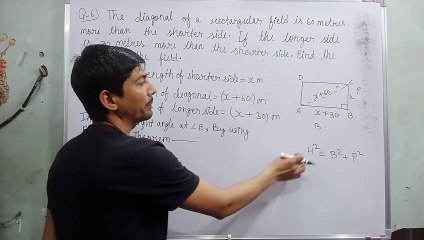 Q.6) The diagonal of a rectangular field is 60 metres
more than the shorter side. If the longer side
is 30 metres more than the shorter side, find the
field.
length of shorter side = x m
of diagonal = (x + 60) m
of longer side = (x + 30) m
right angle at ∠B, By using
D
C
x+60
x
P
A
x + 30
B
B
H² = B² + P²